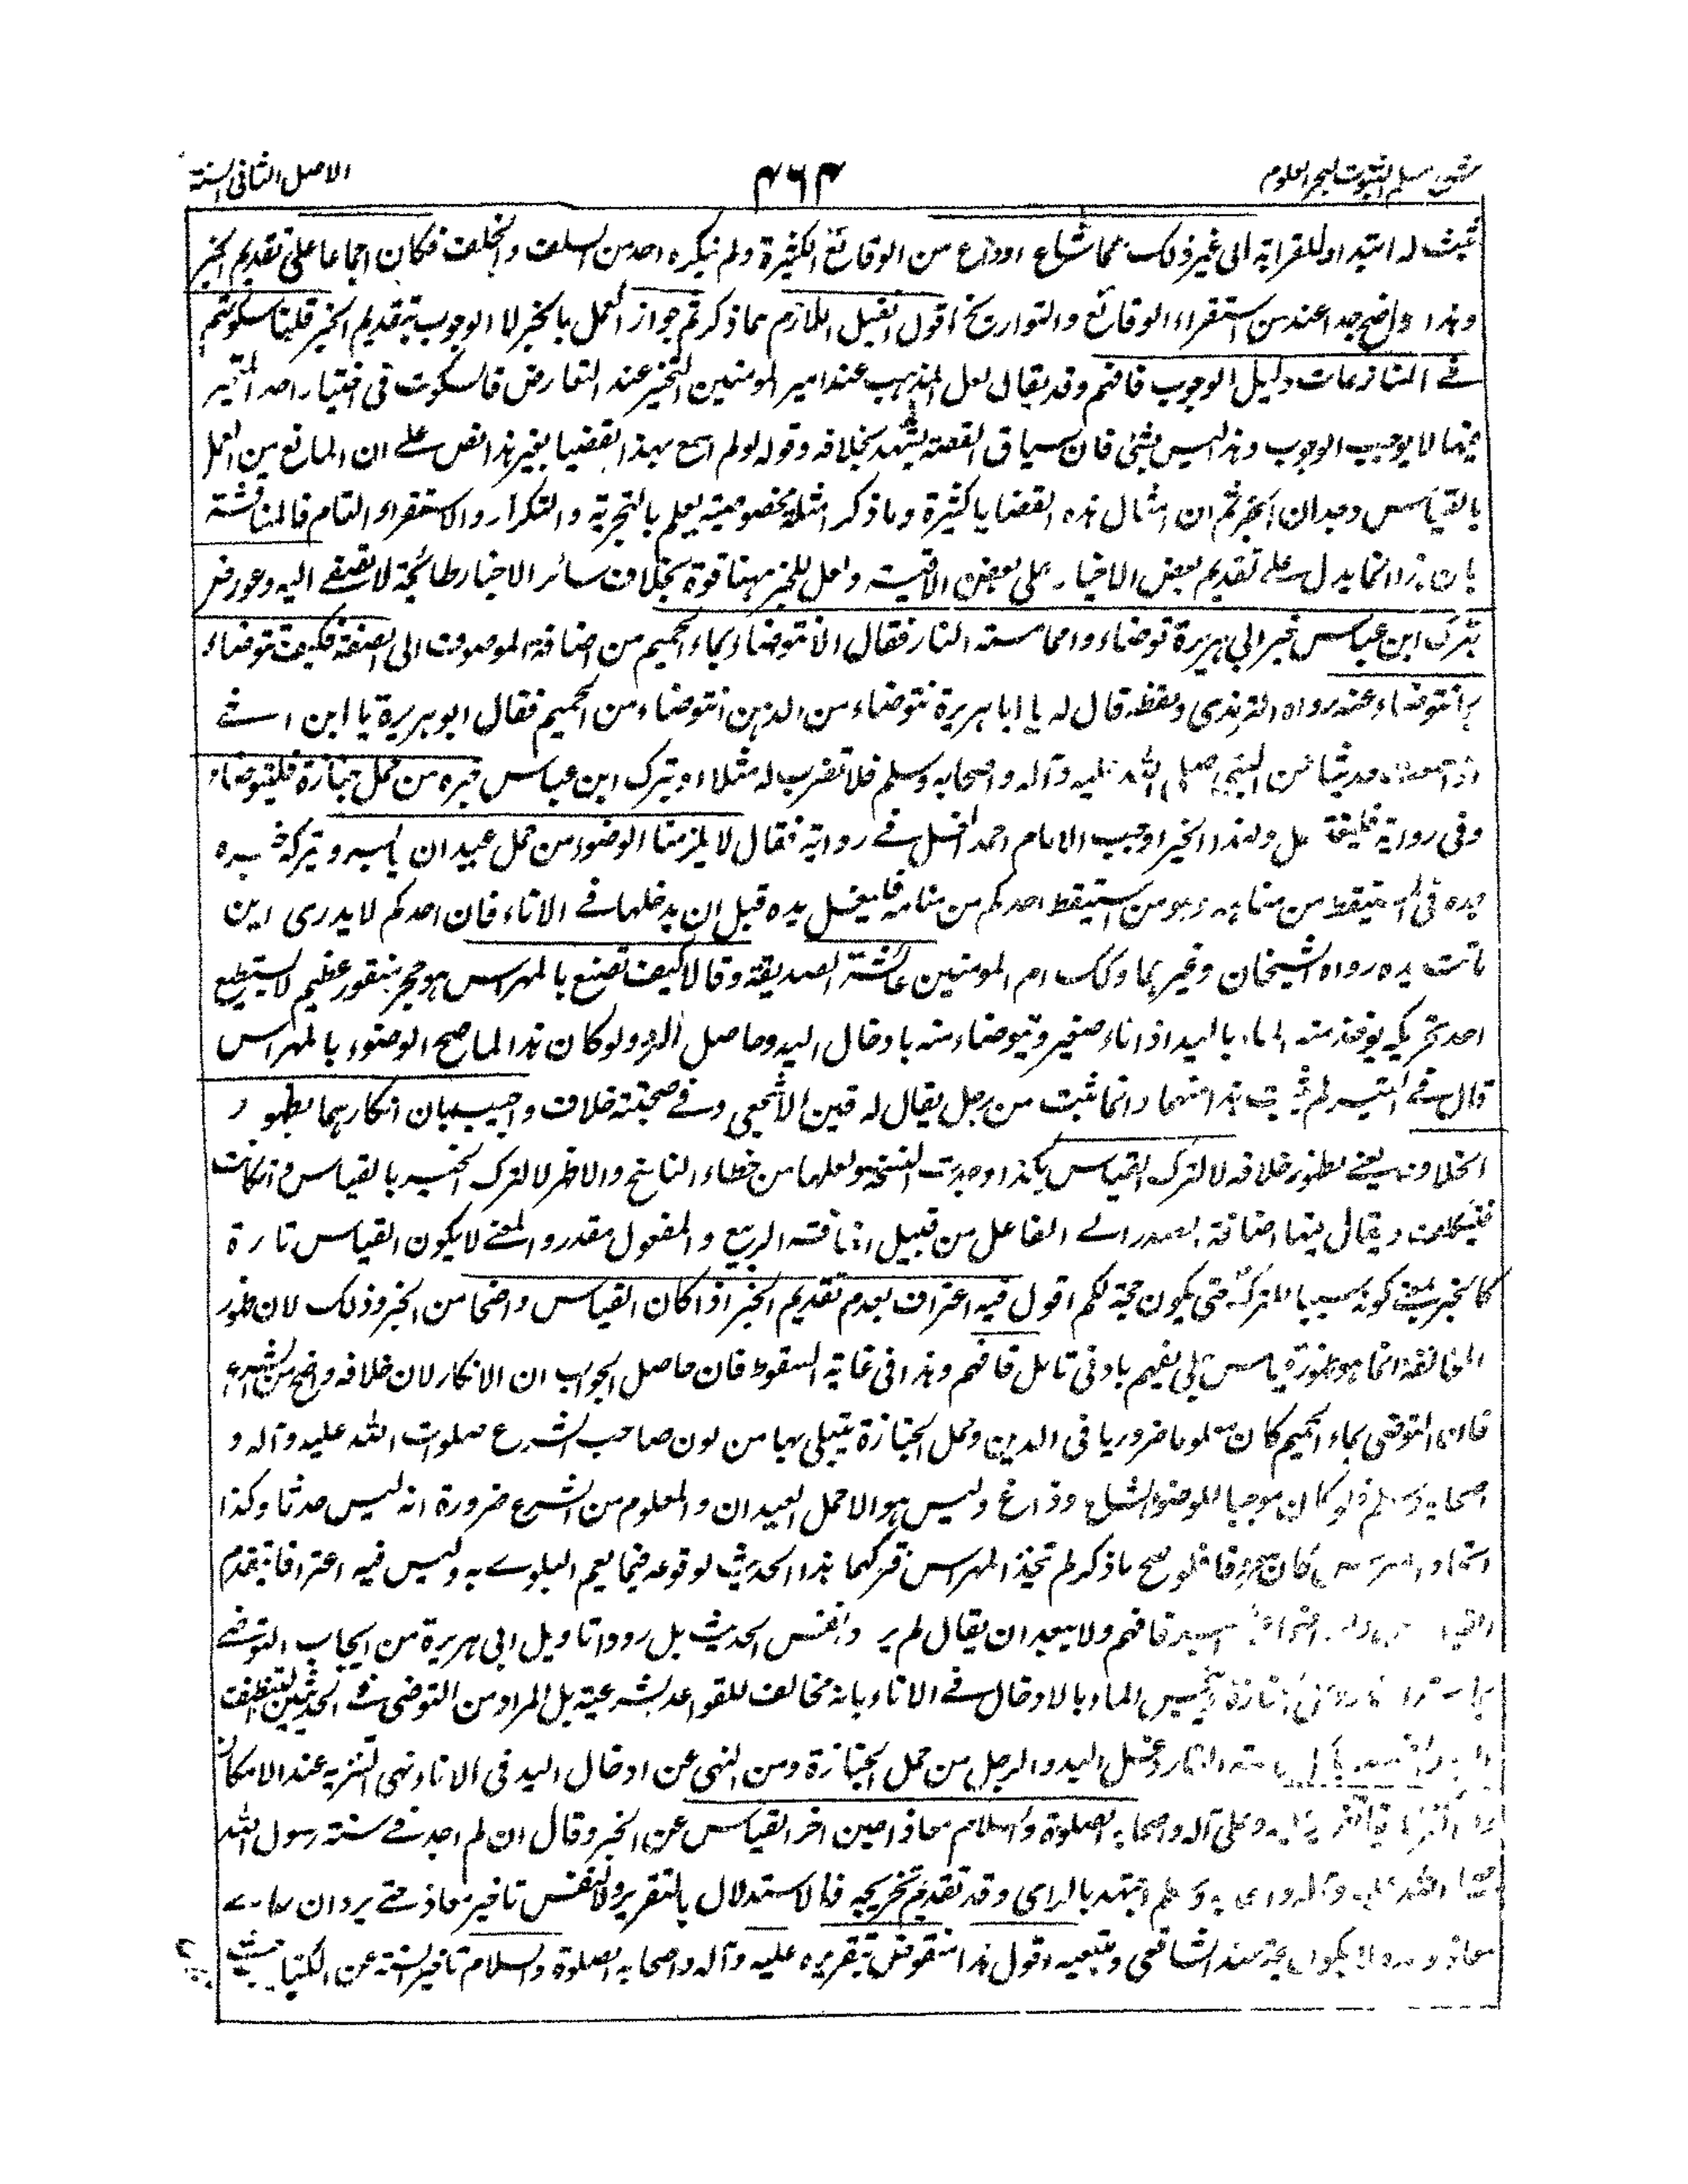 شرح مسلم الثبوت لبحر العلوم
۴۶۴
الاصل الثانی السنة
ثبت له ابتداء او للقرابة الی غیر ذلک مما شاع او ذاع من الوقائع الکثیرة ولم ینکره احد من السلف والخلف فکان اجماعا علی تقدیم الخبر
وهذا واضح جدا عند من استقراء الوقائع والتواریخ اقول لقیل اللازم مما ذکرتم جواز العمل بالخبر لا الوجوب بتقدیم الخبر قلنا سکوتهم
فے المنازعات دلیل الوجوب فافهم وقد یقال لعل المذهب عند امیر المومنین التخییر عند التعارض فالسکوت فی اختیار احد المخیر
منهما لا یوجب الوجوب وهذا لیس بشئ فان سیاق القصة یشهد بخلافه وقوله لو لم اسمع بهذا لقضینا بغیر هذا نص علے ان المانع من العمل
بالقیاس وجدان الخبر ثم ان امثال هذه القضایا کثیرة وما ذکر امثلة بخصوصیة یعلم بالتجربة والتکرار والاستقراء التام فالمناقشة
بان هذا انما یدل علے تقدیم بعض الاخبار علی بعض الاقیسة ولعل للخبر ههنا قوة بخلاف سائر الاخبار طائحة لا یصغے الیه وعورض
بترک ابن عباس خبر ابی هریرة توضاء وا مما مسته النار فقال الا نتوضاء بماء الحمیم من اضافة الموصوف الی الصفة فکیف نتوضاء
بما نتوضاء عنه رواه الترمذی ولفظه قال له یا ابا هریرة نتوضاء من الدهن انتوضاء من الحمیم فقال ابو هریرة یا ابن اخے
اذا سمعت حدیثا عن النبی صلی الله علیه وآله واصحابه وسلم فلا تضرب له مثلا او بترک ابن عباس خبره من حمل جنازة فلیتوضاء
وفی روایة فلیغتسل ولهذا الخبر اوجب الامام احمد الغسل فے روایة فقال لا یلزمنا الوضوء من حمل عیدان یابسة وترکه خبره
هذه فی المستیقظ من منامه وهو من استیقظ احدکم من منامه فلیغسل یده قبل ان یدخلها فے الاناء فان احدکم لا یدری این
باتت یده رواه الشیخان وغیرهما وکذلک ام المومنین عائشة الصدیقة وقالا کیف نصنع بالمهراس هو حجر منقور عظیم لا یستطیع
احد تحریکه یوخذ منه الماء بالید اذا اناء صغیر ویتوضاء منه بادخال الید وحاصل الرد ولو کان هذا لما صح الوضوء بالمهراس
قال فے التیسیر لم یثبت هذا منهما وانما ثبت من رجل یقال له قین الاشجعی وفے صحبته خلاف واجیب بان انکارهما لظهور
الخلاف یعنے لظهور خلافه لا لترک القیاس هکذا وجدت النسخة ولعلها من خطاء الناسخ والاظهر لا لترک الخبر بالقیاس وان کانت
فیتکلف ویقال فیها اضافة المصدر الے الفاعل من قبیل والمفعول مقدر والمعنے لا یکون القیاس تارة
کالخبر یعنے کونه سببا للترک حتی یکون حجة لکم اقول فیه اعتراف بعدم تقدیم الخبر اذا کان القیاس واضحا من الخبر وذلک لان ظهور
المخالفة انما هو لظهور قیاس جلی یفهم بادنی تامل فافهم وهذا فی غایة السقوط فان حاصل الجواب ان الانکار لان خلافه واضح من الشرع
فان التوضی بماء الحمیم کان معلوما ضروریا فی الدین وحمل الجنازة یبتلی بها من لدن صاحب الشرع صلوات الله علیه وآله و
اصحابه وسلم فلو کان موجبا للوضوء لشاع وذاع ولیس هو الا حمل العیدان والمعلوم من الشرع ضرورة انه لیس حدثا وکذا
اتخاذ المهراس کان معروفا فلو صح ما ذکر لم یتخذ المهراس فترکهما هذا الحدیث لوقوعه فیما یعم البلوے به ولیس فیه اعترافا بتقدم
القیاس فافهم ولا یبعد ان یقال لم یرد وا نفس الحدیث بل ردوا تاویل ابی هریرة من ایجاب التوضے
تنجیس الماء بالادخال فے الاناء بانه مخالف للقواعد الشرعیة بل المراد من التوضی فے الحدیثین التنظیف
النار وغسل الید والرجل من حمل الجنازة ومن النهی عن ادخال الید فی الاناء نهی التنزیه عند الامکان
علیه وعلی آله واصحابه الصلوة والسلام معاذا حین اخر القیاس عن الخبر وقال ان لم اجد فے سنة رسول الله
صلی الله علیه وآله واصحابه وسلم اجتهد بالرای وقد تقدم تخریجه فالاستدلال بالتقریر ولا بنفس تاخیر معاذ حتے یرد ان رای
معاذ وحده لا یکون حجة عند الشافعی ومتبعیه اقول هذا منقوض بتقریره علیه وآله واصحابه الصلوة والسلام تاخیر السنة عن الکتاب حیث